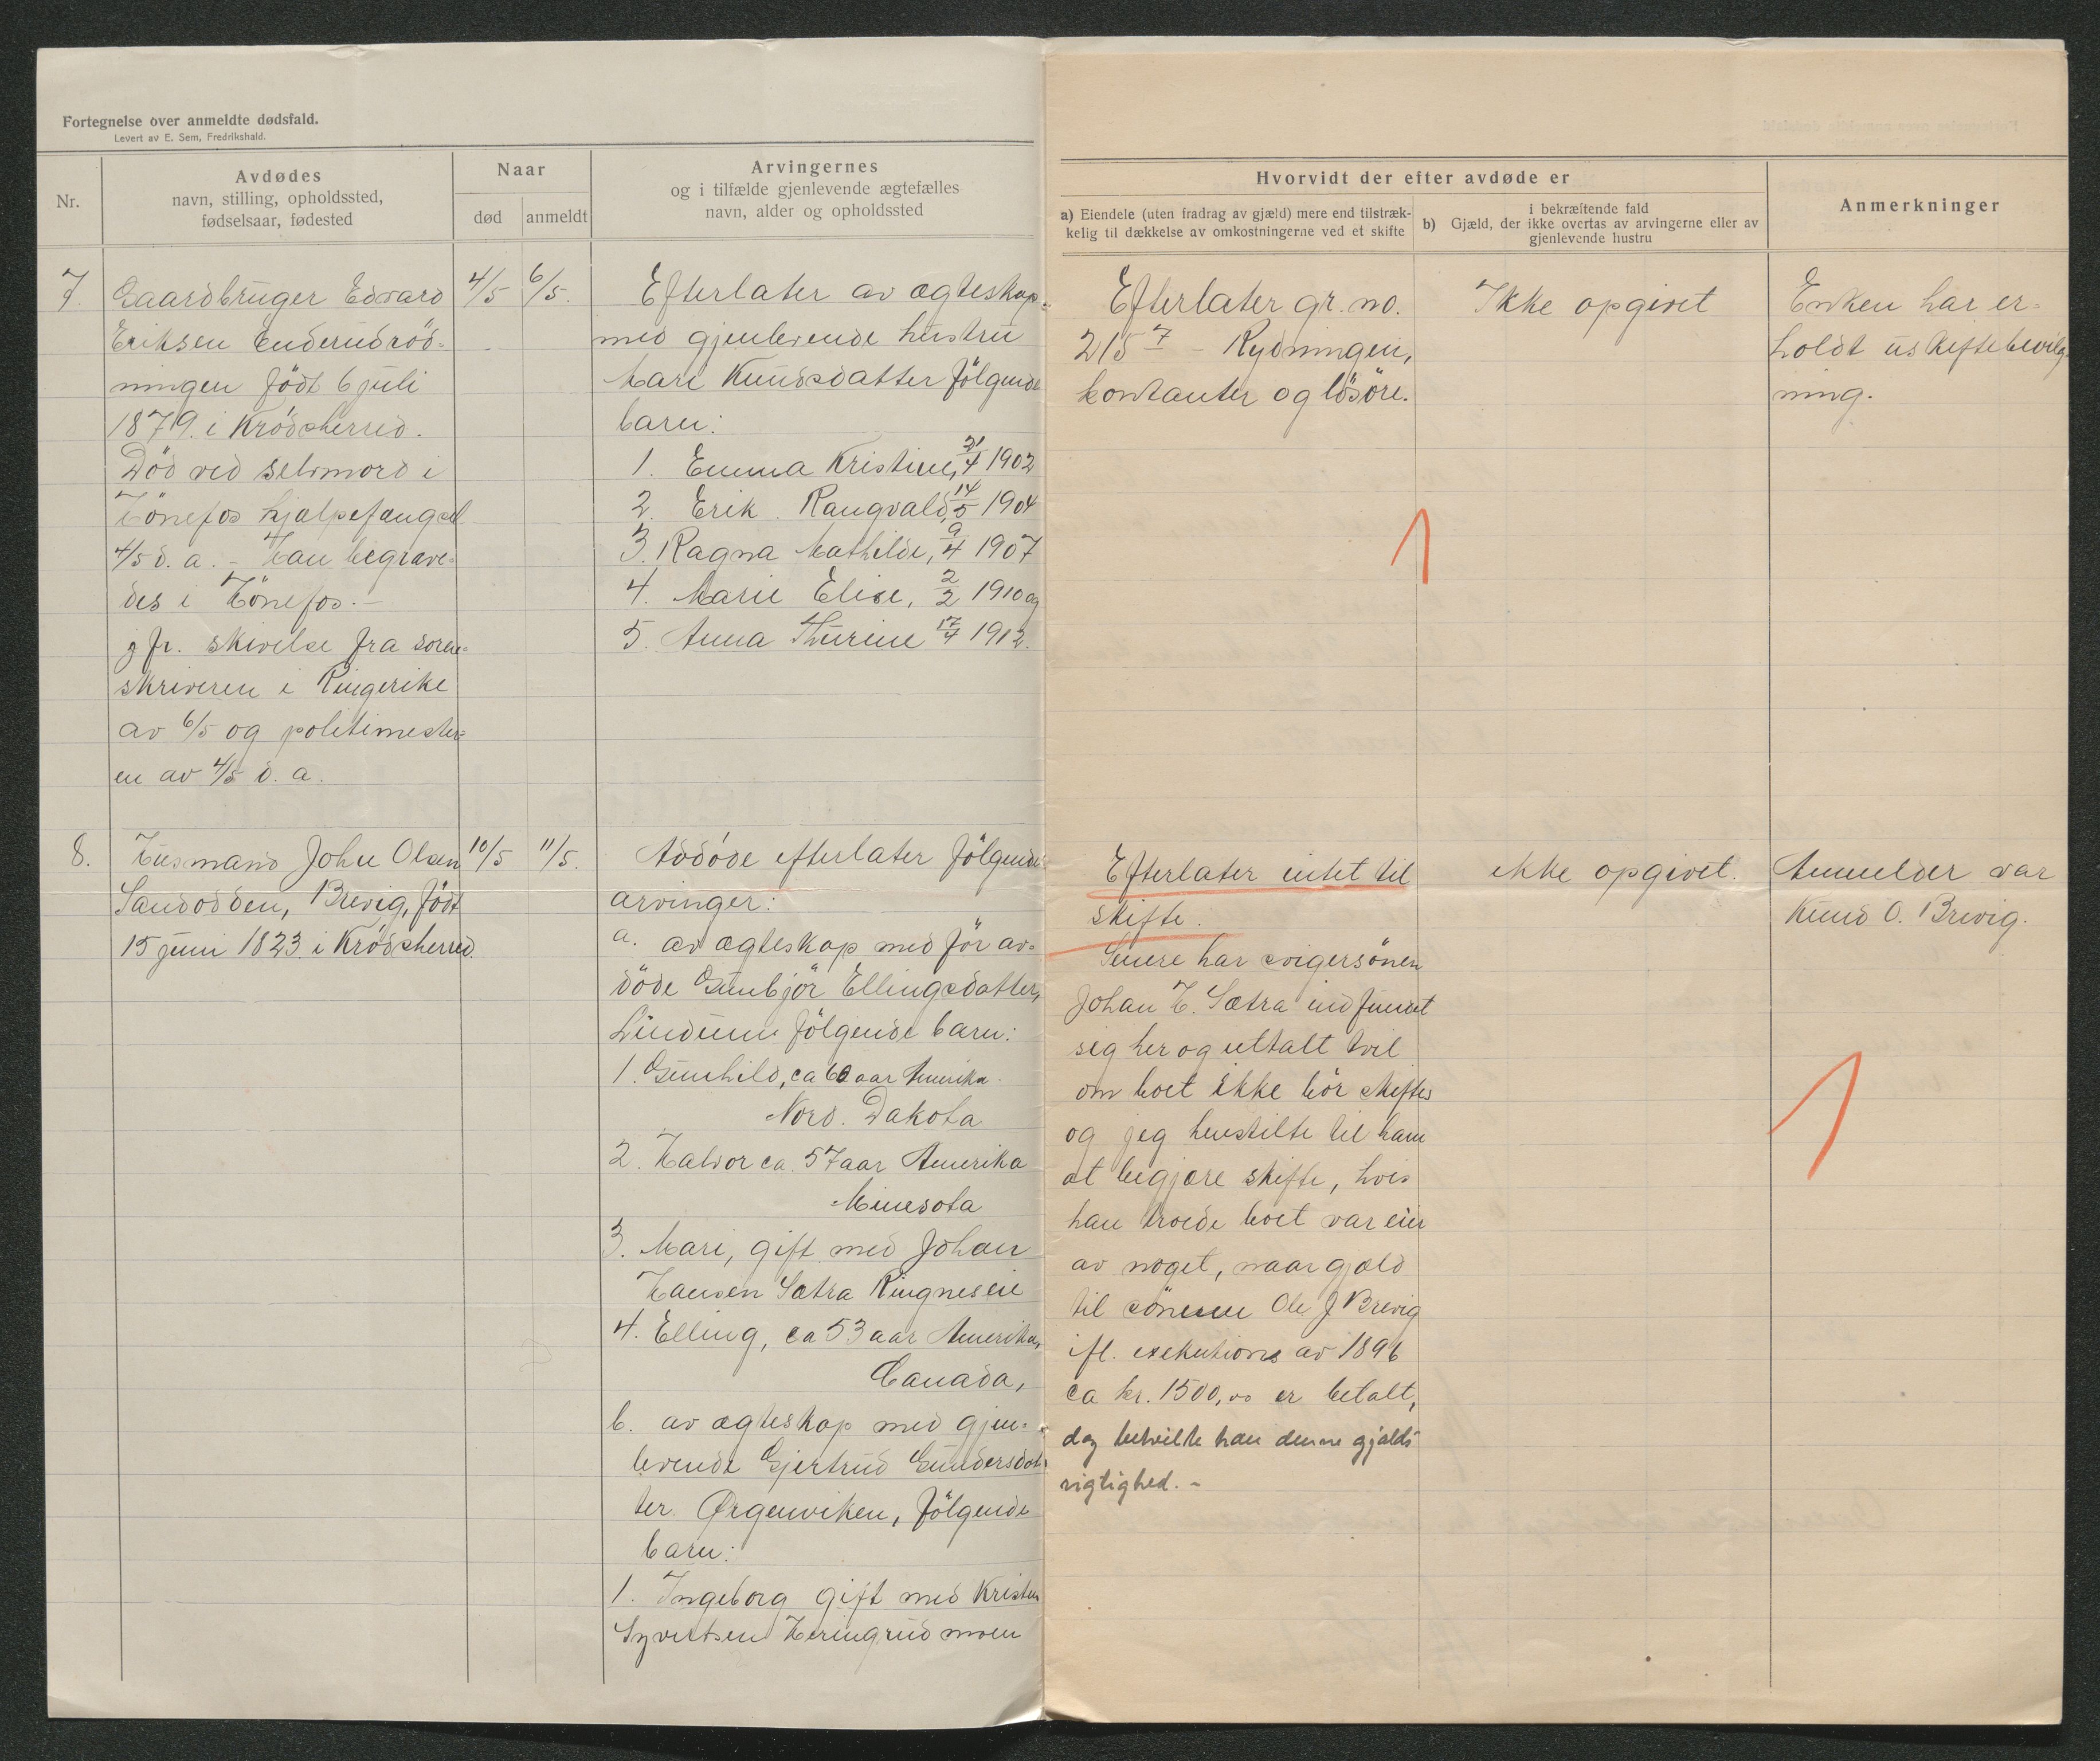 Fortegnelse over anmeldte dødsfald.
Levert av E. Sem, Fredrikshald.
Nr.
Avdødes
navn, stilling, opholdssted,
fødselsaar, fødested
Naar
død
anmeldt
Arvingernes
og i tilfælde gjenlevende ægtefælles
navn, alder og opholdssted
Hvorvidt der efter avdøde er
a) Eiendele (uten fradrag av gjæld) mere end tilstræk-
kelig til dækkelse av omkostningerne ved et skifte
b)
i bekræftende fald
Gjæld, der ikke overtas av arvingerne eller av
gjenlevende hustru
Anmerkninger
7.
Gaardbruger Edvard
Eriksen Enderudröd=
ningen født 6 juli
1879. i Krödsherred.
Död ved selvmord i
Hönefos hjælpefængsel
4/5 d. a. - Han begrave=
des i Hönefos. -
jfr. skivelse fra soren=
skriveren i Ringerike
av 6/5 og politimester=
en av 4/5 d. a.
4/5
6/5.
Efterlater av ægteskap
med gjenlevende hustru
Mari Knudsdatter følgende
barn:
1. Emma Kristine, 21/4 1902
2. Erik Rangvald, 14/5 1904
3. Ragna Mathilde, 9/4 1907
4. Marie Elise, 2/2 1910 og
5. Anna Thurine 17/4 1912.
Efterlater gr. no.
215 7 - Rydningen,
kontanter og lösöre.
Ikke opgivet
Enken har er=
holdt uskiftebevilg=
ning.
8.
Husmand John Olsen
Sandodden, Brevig, født
15 juni 1823. i Krödsherred.
10/5
11/5.
Avdöde efterlater følgende
arvinger:
a. av ægteskap med för av=
döde Gunbjör Ellingsdatter,
Lindum følgende barn:
1. Gunhild, ca 60 aar Amerika.
Nord. Dakota
2. Halvor ca. 57 aar Amerika
Minesota
3. Mari, gift med Johan
Hansen Sætra Ringneseie
4. Elling, ca 53 aar Amerika,
Canada,
b. av ægteskap med gjen=
levende Gjertrud Gundersdat=
ter Ørgenviken, følgende
barn:
1. Ingeborg gift med Kristen
Syvertsen Heringrudmoen
Efterlater intet til
skifte.
Senere har svigersönen
Johan H. Sætra indfundet
sig her og uttalt tvil
om boet ikke bör skiftes
og jeg henstilte til ham
at begjære skifte, hvis
han troede boet var eier
av noget, naar gjæld
til sönnen Ole J Brevig
ifl. exekutions av 1896
ca kr. 1500,00 er betalt,
dog betvilte han denne gjælds
rigtighed. -
ikke opgivet.
Anmelder var
Knud O. Brevig.